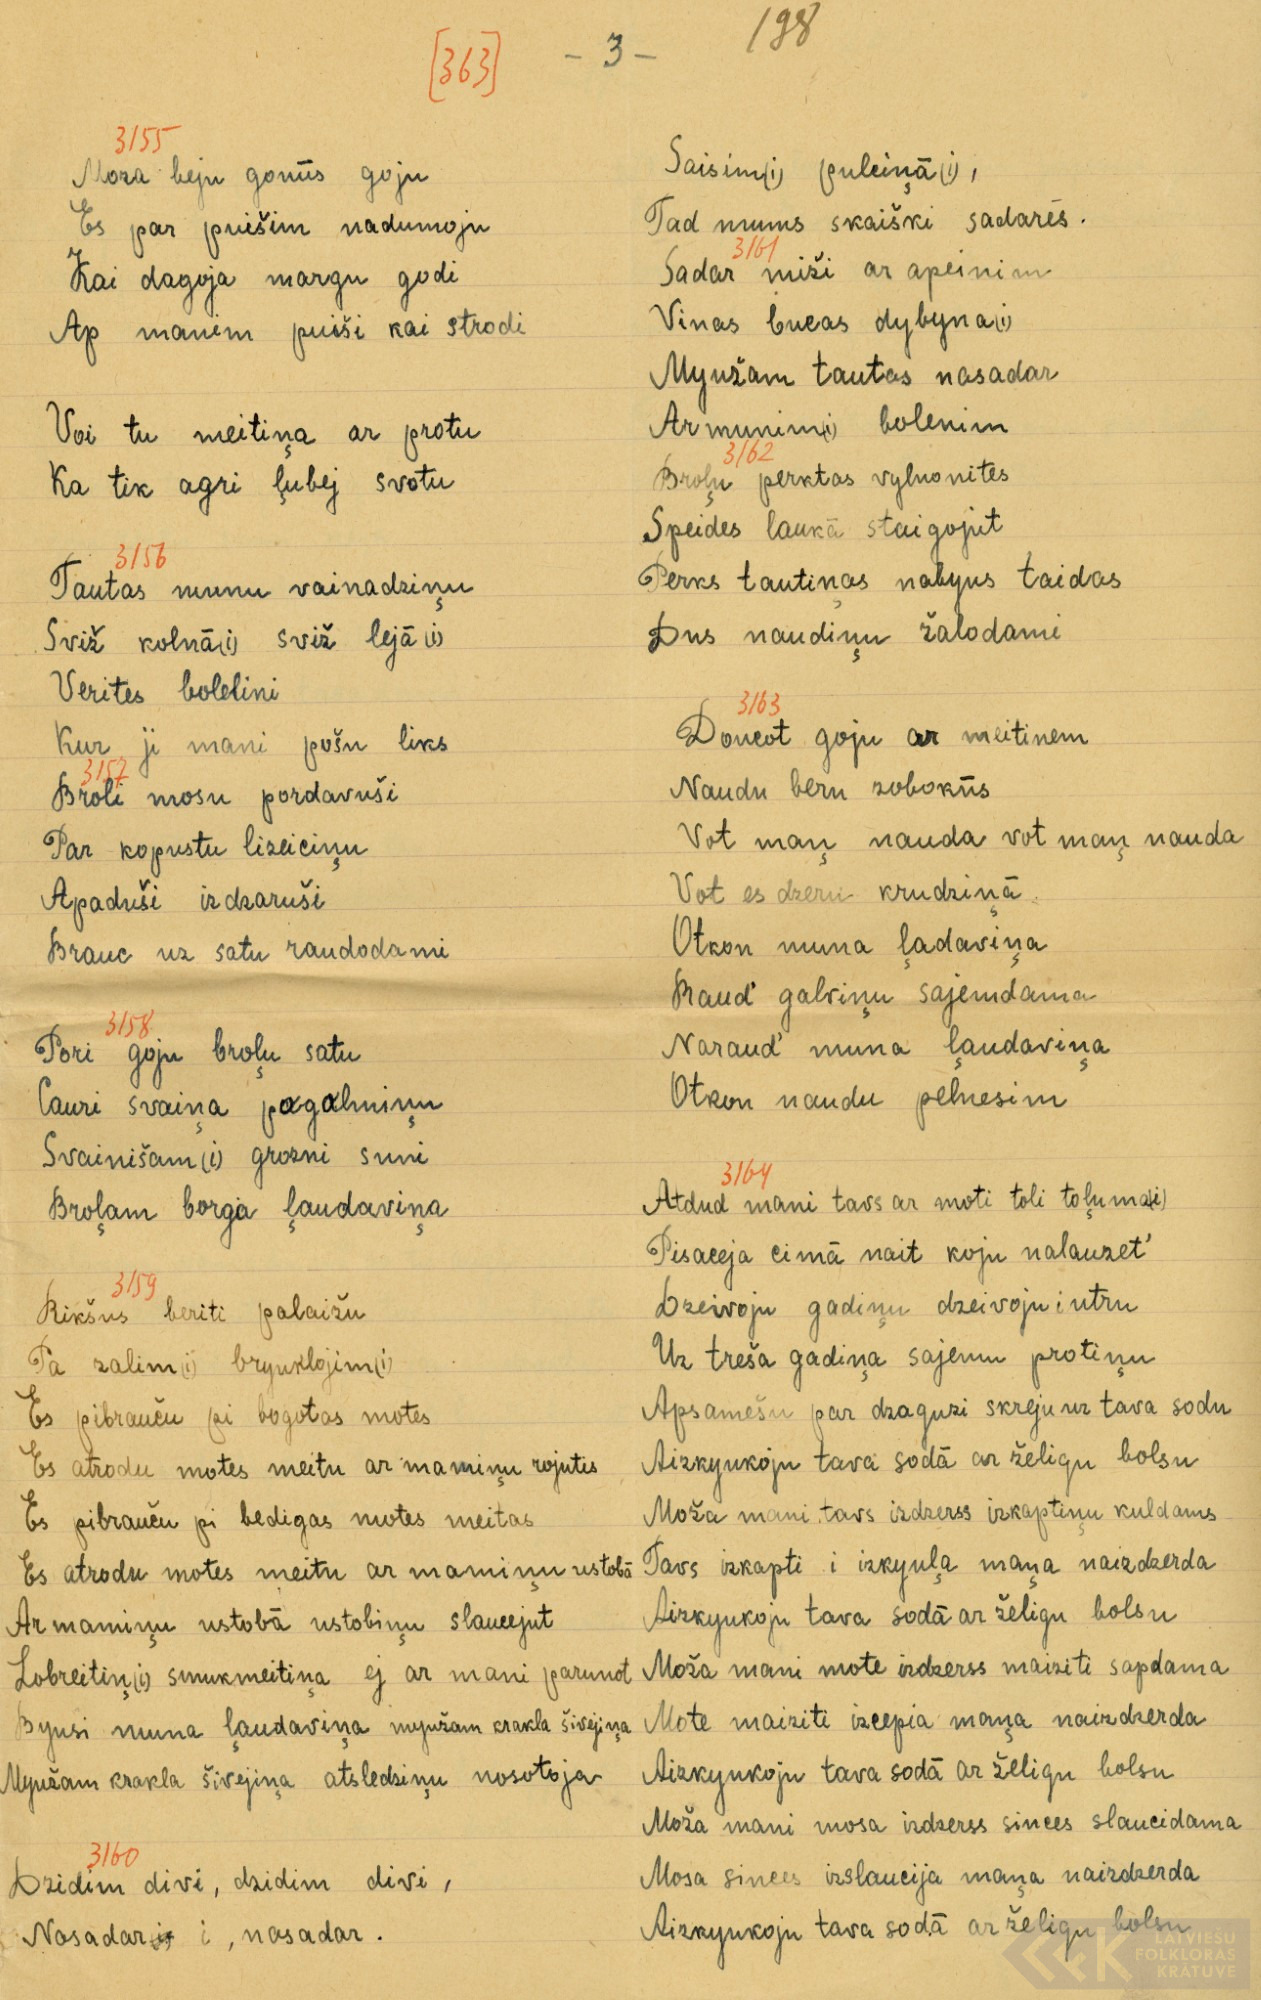 [363] - 3 - 198
3155
Moza beju gonūs goju
Es par puišim nadumoju
Kai dagoja margu godi
Ap manim puiši kai strodi
Voi tu meitiņa ar protu
Ka tik agri ļubej svotu
3156
Tautas munu vainadziņu
Sviž kolnā(i) sviž lejā(i)
Verites bolelini
Kur ji mani pošu liks
3157
Broli mosu pordavuši
Par kopustu lizeiciņu
Apaduši izdzaruši
Brauc uz satu raudodami
3158
Pori goju broļu satu
Cauri svaiņa pagalmiņu
Svainišam(i) grozni suni
Broļam borga ļaudaviņa
3159
Rikšus beriti palaižu
Pa zalim(i) bryuklojim(i)
Es pibrauču pi bogotas motes
Es atrodu motes meitu ar mamiņu rojutis
Es pibrauču pi bedigas motes meitas
Es atrodu motes meitu ar mamiņu ustobā
Ar mamiņu ustobā ustobiņu slaucejut
Lobreitiņ(i) smukmeitiņa ej ar mani parunot
Byusi muna ļaudaviņa myužam krakla šivejiņa
Myužam krakla šivejiņa atsledziņu nosotoja
3160
Dzidim divi, dzidim divi,
Nasadar i, nasadar.
Saisim(i) puleiņā(i),
Tad mums skaiški sadarēs.
3161
Sadar miži ar apeinim
Vinas bucas dybyna(i)
Myužam tautas nasadar
Ar munim(i) bolenim
3162
Broļu perktas vylnonites
Speides laukā staigojut
Perks tautiņas nabyus taidas
Dus naudiņu žalodami
3163
Doncot goju ar meitinem
Naudu beru zobokūs
Vot maņ nauda vot maņ nauda
Vot es dzeru krudziņā
Otkon muna ļadaviņa
Raud' galviņu sajemdama
Naraud' muna ļaudaviņa
Otkon naudu pelnesim
3164
Atdud mani tavs ar moti toli toļuma(i)
Pisaceja cimā nait koju nalauzet'
Dzeivoju gadiņu dzeivoju i utru
Uz treša gadiņa sajemu protiņu
Apsamešu par dzaguzi skreju uz tava sodu
Aizkyukoju tava sodā ar želigu bolsu
Moža mani tavs izdzerss izkaptiņu kuldams
Tavs izkapti i izkyuļa maņa naizdzerda
Aizkyukoju tava sodā ar želigu bolsu
Moža mani mote izdzerss maiziti sapdama
Mote maiziti izcepia maņa naizdzerda
Aizkyukoju tava sodā ar želigu bolsu
Moža mani mosa izdzerss sinces slaucidama
Mosa sinces izslaucija maņa naizdzerda
Aizkyukoju tava sodā ar želigu bolsu
LATVIEŠU
FOLKLORAS
KRĀTUVE